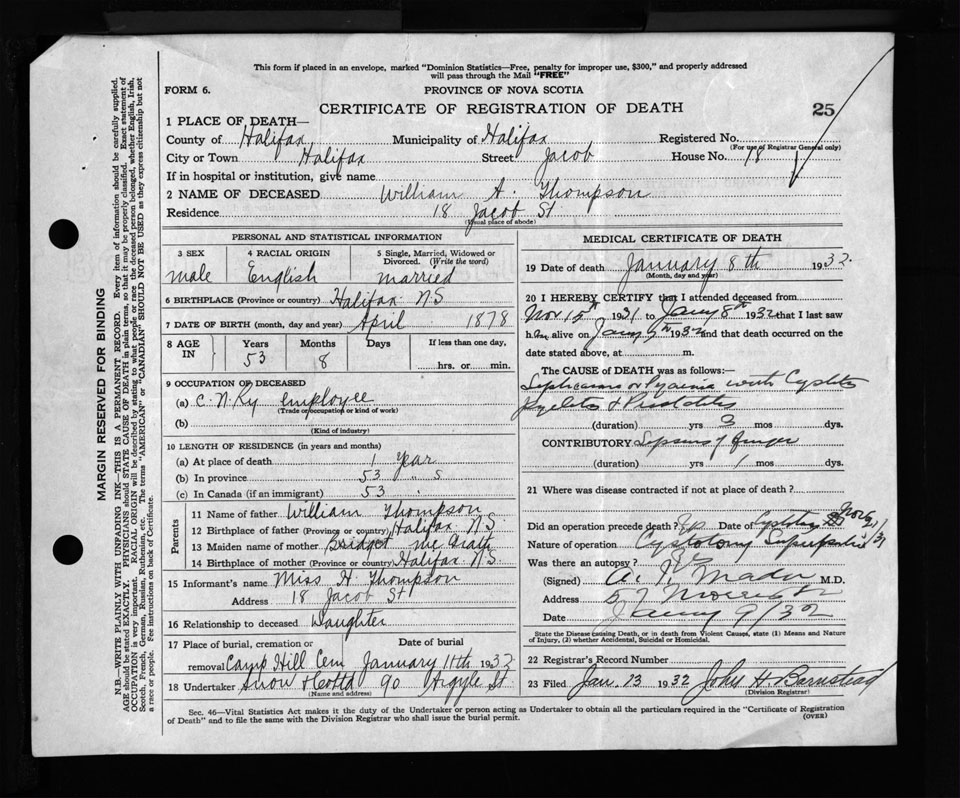 This form if placed in an envelope, marked "Dominion Statistics—Free, penalty for improper use, $300," and properly addressed
will pass through the Mail "FREE"
FORM 6.
PROVINCE OF NOVA SCOTIA
CERTIFICATE OF REGISTRATION OF DEATH
25
1 PLACE OF DEATH—
County of Halifax Municipality of Halifax Registered No.
(For use of Registrar General only)
City or Town Halifax Street Jacob House No. 18
If in hospital or institution, give name
2 NAME OF DECEASED William A. Thompson
Residence 18 Jacob St
(Usual place of abode)
PERSONAL AND STATISTICAL INFORMATION
3 SEX 4 RACIAL ORIGIN 5 Single, Married, Widowed or
Divorced. (Write the word)
male English married
6 BIRTHPLACE (Province or country) Halifax N.S
7 DATE OF BIRTH (month, day and year) April 1878
8 AGE IN Years Months Days If less than one day,
53 8 hrs. or min.
9 OCCUPATION OF DECEASED
(a) C. N. Ry employee
(Trade or occupation or kind of work)
(b)
(Kind of industry)
10 LENGTH OF RESIDENCE (in years and months)
(a) At place of death 1 Year
(b) In province 53 " s
(c) In Canada (if an immigrant) 53 "
Parents
11 Name of father William Thompson
12 Birthplace of father (Province or country) Halifax N.S.
13 Maiden name of mother Bridget McGrath
14 Birthplace of mother (Province or country) Halifax N.S
15 Informant's name Miss H. Thompson
Address 18 Jacob St
16 Relationship to deceased Daughter
17 Place of burial, cremation or Date of burial
removal Camp Hill Cem January 11th 1932
18 Undertaker Snow 90 Argyle St
(Name and address)
MEDICAL CERTIFICATE OF DEATH
19 Date of death January 8th 1932.
(Month, day and year)
20 I HEREBY CERTIFY that I attended deceased from
Nov 15th 1931 to Jany 8th 1932 that I last saw
h alive on Jany 1932 and that death occurred on
the date stated above, at m.
The CAUSE OF DEATH was as follows:—
or Pyaemia with Cystitis
Pyelitis & Prostatitis
(duration) yrs 3 mos dys.
CONTRIBUTORY
(duration) yrs 1 mos dys.
21 Where was disease contracted if not at place of death?
Did an operation precede death? Date of
Nature of operation Cystotomy
Was there an autopsy?
(Signed) M.D.
Address 57 Morris St
Date Jany 9/32
State the Disease causing Death, or in death from Violent Causes, state (1) Means and Nature
of Injury, (2) whether Accidental, Suicidal or Homicidal.
22 Registrar's Record Number
23 Filed Jan. 13 1932 John H. Barnstead
(Division Registrar)
Sec. 46—Vital Statistics Act makes it the duty of the Undertaker or person acting as Undertaker to obtain all the particulars required in the "Certificate of Registration
of Death" and to file the same with the Division Registrar who shall issue the burial permit.
(OVER)
MARGIN RESERVED FOR BINDING
N.B.—WRITE PLAINLY WITH UNFADING INK—THIS IS A PERMANENT RECORD. Every item of information should be carefully supplied.
AGE should be stated EXACTLY. PHYSICIANS should STATE CAUSE OF DEATH in plain terms, so that it may be properly classified. Exact statement of
OCCUPATION is very important. RACIAL ORIGIN will be described by stating to what people or race the deceased person belonged, whether English, Irish,
Scotch, French, German, Russian, Ruthenian, etc. The terms "AMERICAN" or "CANADIAN" SHOULD NOT BE USED as they express citizenship but not
a race or people. See instructions on back of Certificate.